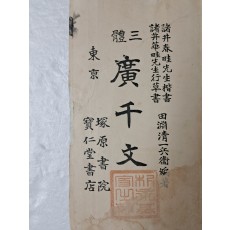 諸井春畦先生楷書
諸井華畦先生行草書
田淵清一兵衛
三體
廣千文
東京
塚原書院
寶仁堂書店